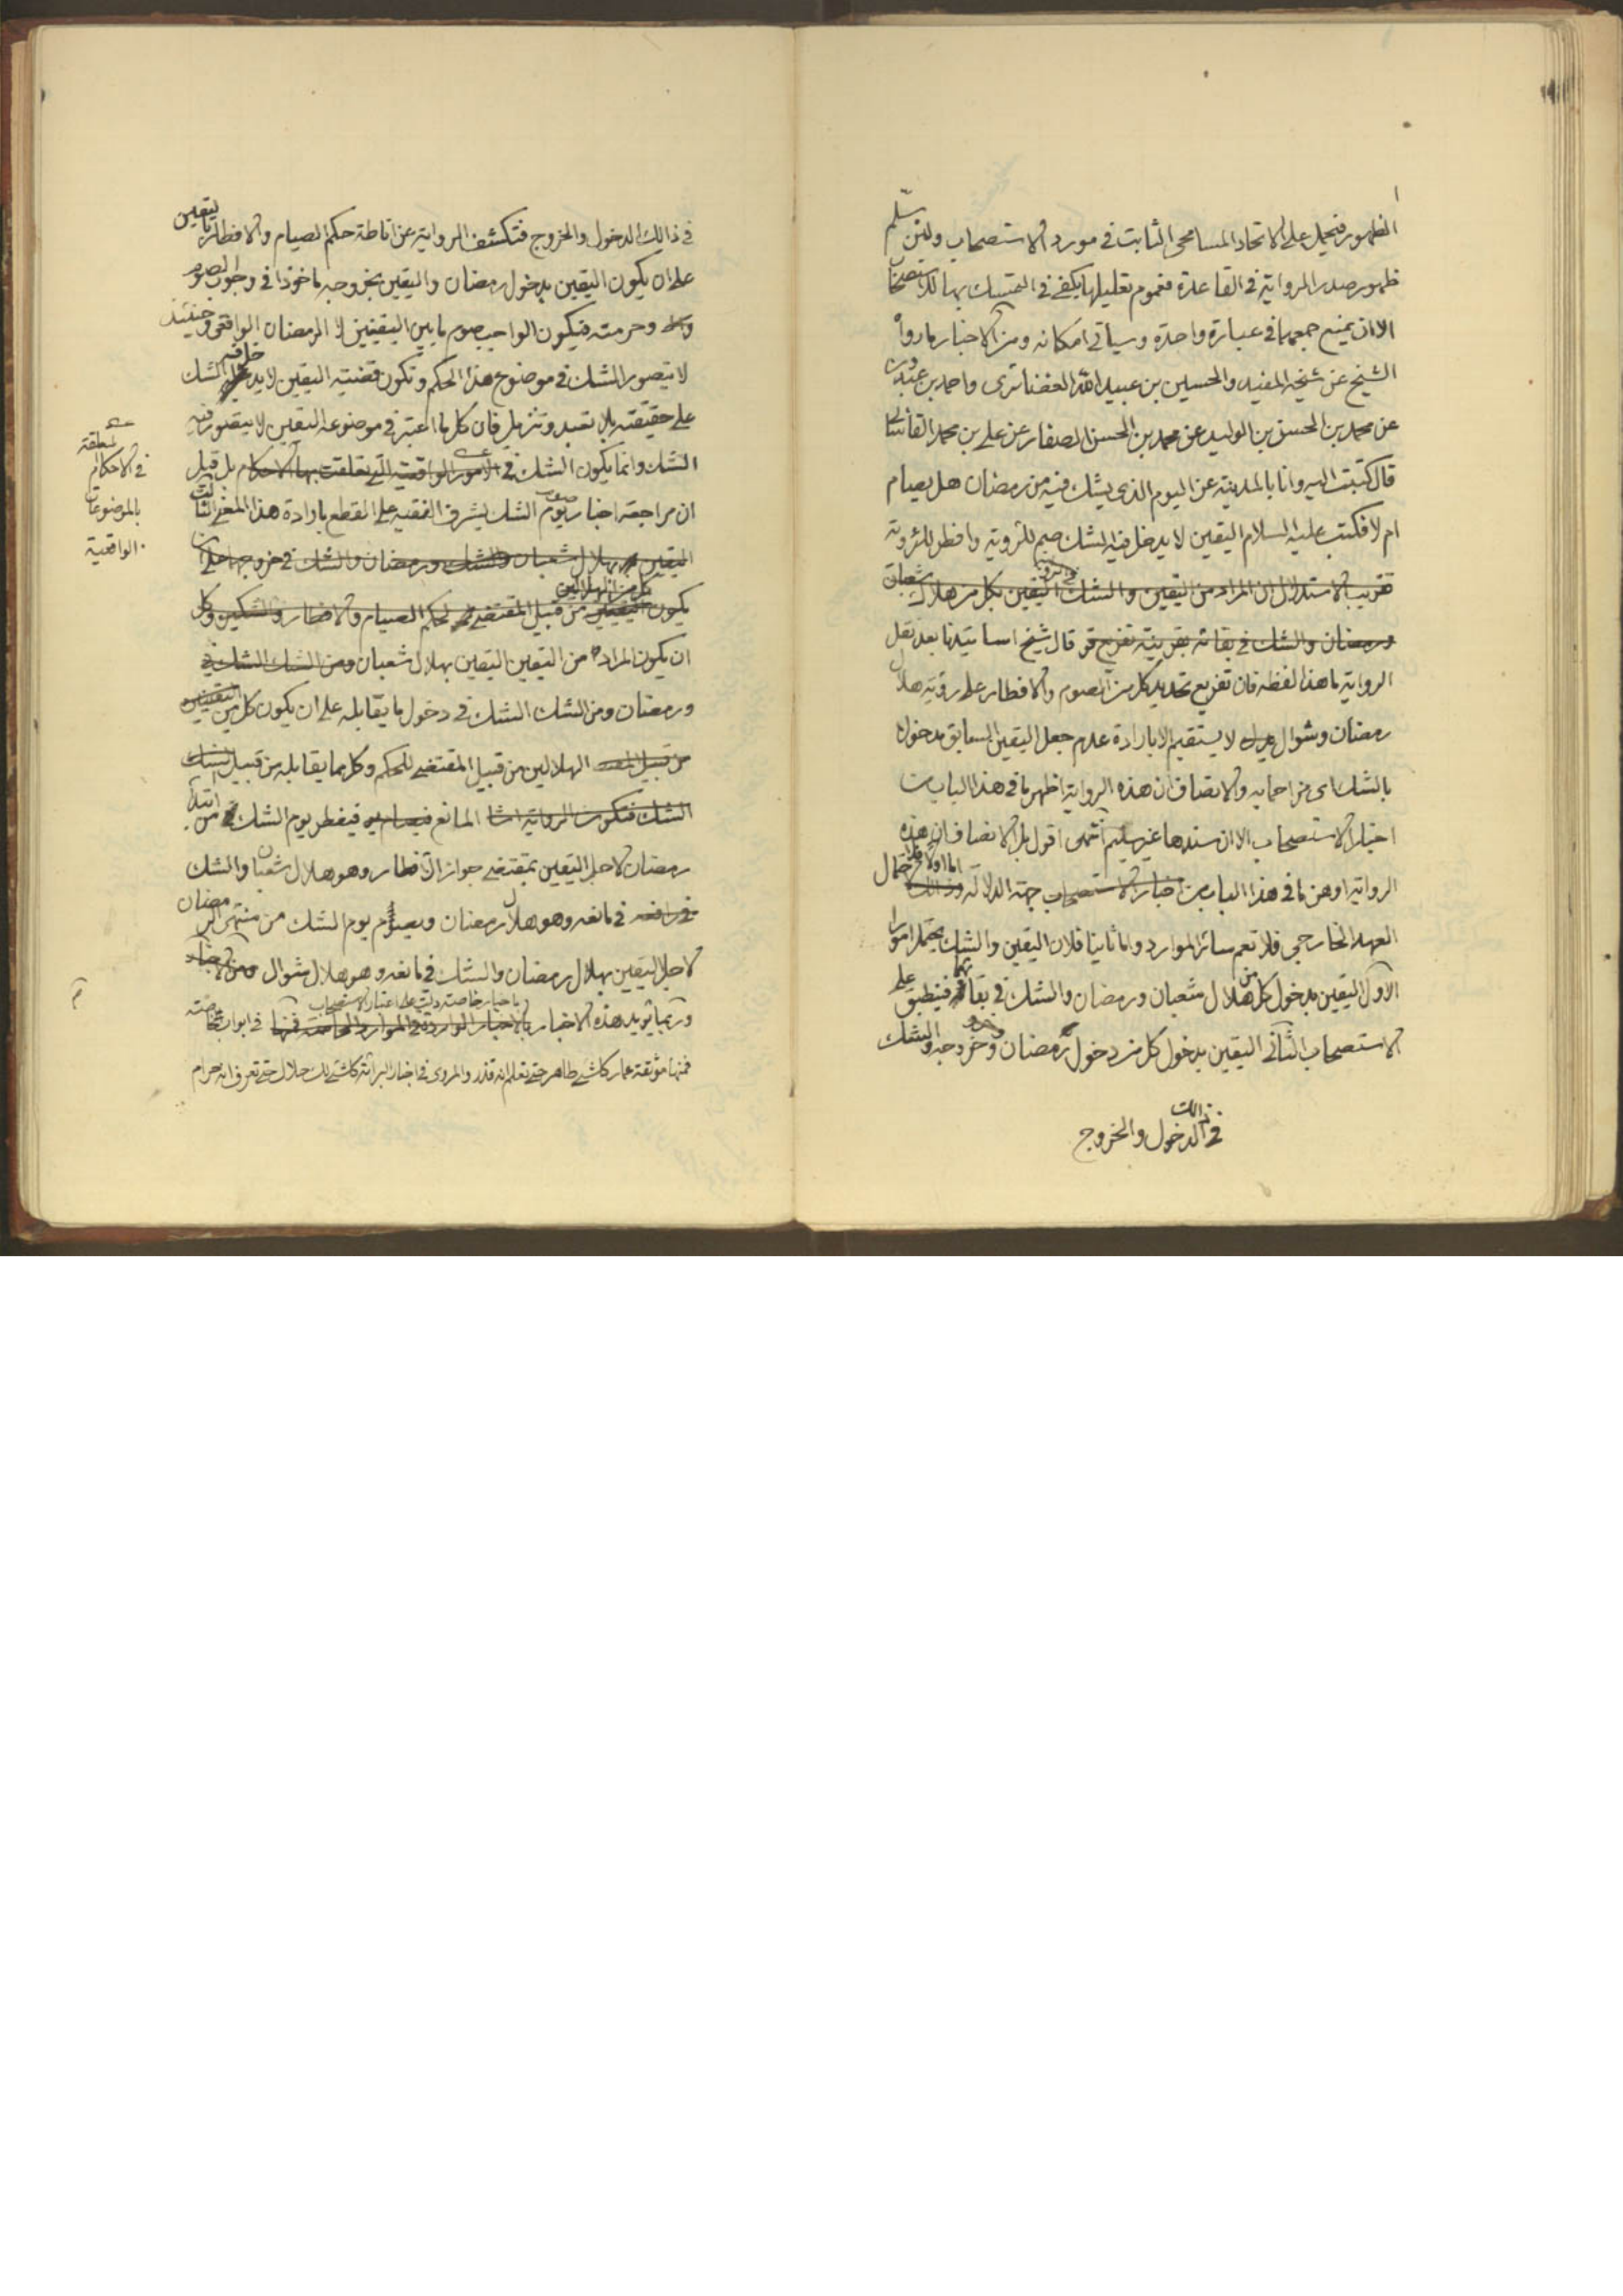 الظهور فيحمل على الاتحاد المسامحى الثابت فى مورد الاستصحاب ولئن سلّم
ظهور صدر الرواية فى القاعدة فعموم تعليلها يكفى فى التمسك بها للاستصحاب
الا ان يمنع جمعهما فى عبارة واحدة وسياتى امكانه ومن الاخبار ما رواه
الشيخ عن شيخه المفيد والحسين بن عبيد الله الغضائرى واحمد بن عبدون
عن محمد بن الحسن بن الوليد عن محمد بن الحسن الصفار عن على بن محمد القاسانى
قال كتبت اليه وانا بالمدينة عن اليوم الذى يشك فيه من رمضان هل يصام
ام لا فكتب عليه السلام اليقين لا يدخل فيه الشك صم للرؤية وافطر للرؤية
تقريب الاستدلال ان المراد من اليقين والشك اليقين بكل من هلال شعبان
ورمضان والشك فى بقائه بقرينة تفريع قال شيخ اساتيدنا بعد نقل
الرواية ما هذا لفظه فان تفريع تحديد كل من الصوم والافطار على رؤية هلال
رمضان وشوال لا يستقيم الا بارادة عدم جعل اليقين السابق مدخولا
بالشك اى مزاحما به والانصاف ان هذه الرواية اظهر ما فى هذا الباب من
اخبار الاستصحاب الا ان سندها غير سليم انتهى اقول بل الانصاف ان هذه
الرواية اوهن ما فى هذا الباب من اخبار الاستصحاب جهة الدلالة اما اولا فلاحتمال
العهد الخارجى فلا تعم سائر الموارد واما ثانيا فلان اليقين والشك يحتمل امورا
الاول اليقين بدخول كل من هلال شعبان ورمضان والشك فى بقائهما فينطبق على
الاستصحاب الثانى اليقين بدخول كل من دخول رمضان وخروجه والشك
فى ذالك الدخول والخروج
فى ذالك الدخول والخروج فتكشف الرواية عن اناطة حكم الصيام والافطار بيقين
على ان يكون اليقين بدخول رمضان واليقين بخروجه ماخوذا فى وجوب الصوم
وحرمته فيكون الواجب صوم ما بين اليقينين لا الرمضان الواقعى وحينئذ
لا يتصور الشك فى موضوع هذا الحكم وتكون قضية اليقين لا يدخله الشك
على حقيقته بلا تعبد وتنزيل فان كل ما اعتبر فى موضوعه اليقين لا يتصور فيه
الشك وانما يكون الشك فى الامور الواقعية التى تعلقت بها الاحكام بل قيل
معلقة
فى الاحكام
بالموضوعات
الواقعية
ان مراجعة اخبار يوم الشك يشرف الفقيه على القطع بارادة هذا المعنى الثالث
اليقين بهلال شعبان والشك ورمضان والشك فى خروجها على ان
يكون كل من الهلالين من قبيل المقتضى لحكم الصيام والافطار والشكين وكل
ان يكون المراد من اليقين اليقين بهلال شعبان ومن الشك الشك فى
ورمضان ومن الشك الشك فى دخول ما يقابله على ان يكون كل من اليقينين
الهلالين من قبيل المقتضى للحكم وكل ما يقابله من قبيل الشك
الشك فتكون الرواية المانع فيفطر يوم الشك من ابتداء
رمضان لاجل اليقين بمقتضى جواز الافطار وهو هلال شعبان والشك
فى مانعه وهو هلال رمضان ويصوم يوم الشك من منتهى رمضان
لاجل اليقين بهلال رمضان والشك فى مانعه وهو هلال شوال
وربما يؤيد هذه الاخبار باخبار خاصة دلت على اعتبار الاستصحاب فى ابواب خاصة
فمنها موثقة عمار كل شىء طاهر حتى تعلم انه قذر والمروى فى اخبار البرائة كل شىء لك حلال حتى تعرف انه حرام